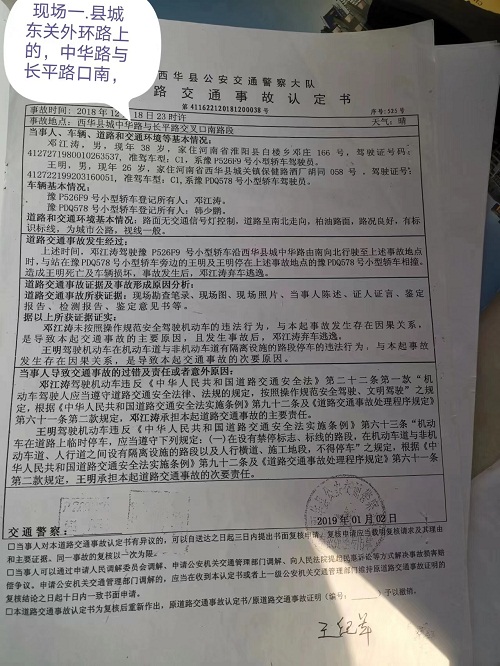 现场一.县城
东关外环路上
的，中华路与
长平路口南，
西华县公安交通警察大队
路交通事故认定书
第 411622120181200038 号
序号:525号
事故时间：2018 年 12 18 日 23 时许
天气：晴
事故地点：西华县城中华路与长平路交叉口南路段
当事人、车辆、道路和交通环境等基本情况：
邓江涛，男，现年 38 岁，家住河南省淮阳县白楼乡邓庄 166 号，驾驶证号码：
4127271980010263537，准驾车型：C1，系豫 P526F9 号小型轿车驾驶员。
王明，男，现年 26 岁，家住河南省西华县城关镇保健路酒厂胡同 058 号，驾驶证号：
412722199203160051，准驾车型：C1，系豫 PDQ578 号小型轿车驾驶员。
车辆基本情况：
豫 P526F9 号小型轿车登记所有人：邓江涛。
豫 PDQ578 号小型轿车登记所有人：韩少鹏。
道路和交通环境基本情况：路面无交通信号灯控制，道路呈南北走向，柏油路面，路况良好，有标
识标线，为城市公路，视线一般。
道路交通事故发生经过：
上述时间，邓江涛驾驶豫 P526F9 号小型轿车沿西华县城中华路由南向北行驶至上述事故地点
时，与站在豫 PDQ578 号小型轿车旁边的王明及王明停在上述事故地点的豫 PDQ578 号小型轿车相撞，
造成王明死亡及车辆损坏，事故发生后，邓江涛弃车逃逸。
道路交通事故证据及事故形成原因分析：
道路交通事故所获证据：现场勘查笔录、现场图、现场照片、当事人陈述、证人证言、鉴定
报告、检测报告、鉴定意见书等。
据以上所获证据证实：
邓江涛未按照操作规范安全驾驶机动车的违法行为，与本起事故发生存在因果关系，
是导致本起交通事故的主要原因，且发生事故后，邓江涛弃车逃逸。
王明驾驶机动车在机动车道与非机动车道有隔离设施的路段停车的违法行为，与本起事故
发生存在因果关系，是导致本起交通事故的次要原因。
当事人导致交通事故的过错及责任或者意外原因：
邓江涛驾驶机动车违反《中华人民共和国道路交通安全法》第二十二条第一款“机
动车驾驶人应当遵守道路交通安全法律、法规的规定，按照操作规范安全驾驶、文明驾驶”之规
定，根据《中华人民共和国道路交通安全法实施条例》第九十二条及《道路交通事故处理程序规定》
第六十一条第二款规定，邓江涛承担本起道路交通事故的主要责任。
王明驾驶机动车违反《中华人民共和国道路交通安全法实施条例》第六十三条“机动
车在道路上临时停车，应当遵守下列规定：(一)在设有禁停标志、标线的路段，在机动车道与非机
动车道、人行道之间设有隔离设施的路段以及人行横道、施工地段，不得停车”之规定，根据《中
华人民共和国道路交通安全法实施条例》第九十二条及《道路交通事故处理程序规定》第六十一条
第二款规定，王明承担本起道路交通事故的次要责任。
交通警察：
2019 年 01 月 02 日
□当事人对本道路交通事故认定书有异议的，可以自送达之日起三日内提出书面复核申请。复核申请应当载明复核请求及其理由
和主要证据。同一事故的复核以一次为限。
□当事人可以通过申请人民调解委员会调解、申请公安机关交通管理部门调解、向人民法院提起民事诉讼等方式解决事故损害赔
偿争议。申请公安机关交通管理部门调解的，应当在收到本认定书或者上一级公安机关交通管理部门维持原道路交通事故证明的
复核结论之日起十日内一致书面申请。
□本道路交通事故认定书为复核后重新作出，原道路交通事故认定书/原道路交通事故证明（编号： ）予以撤销。